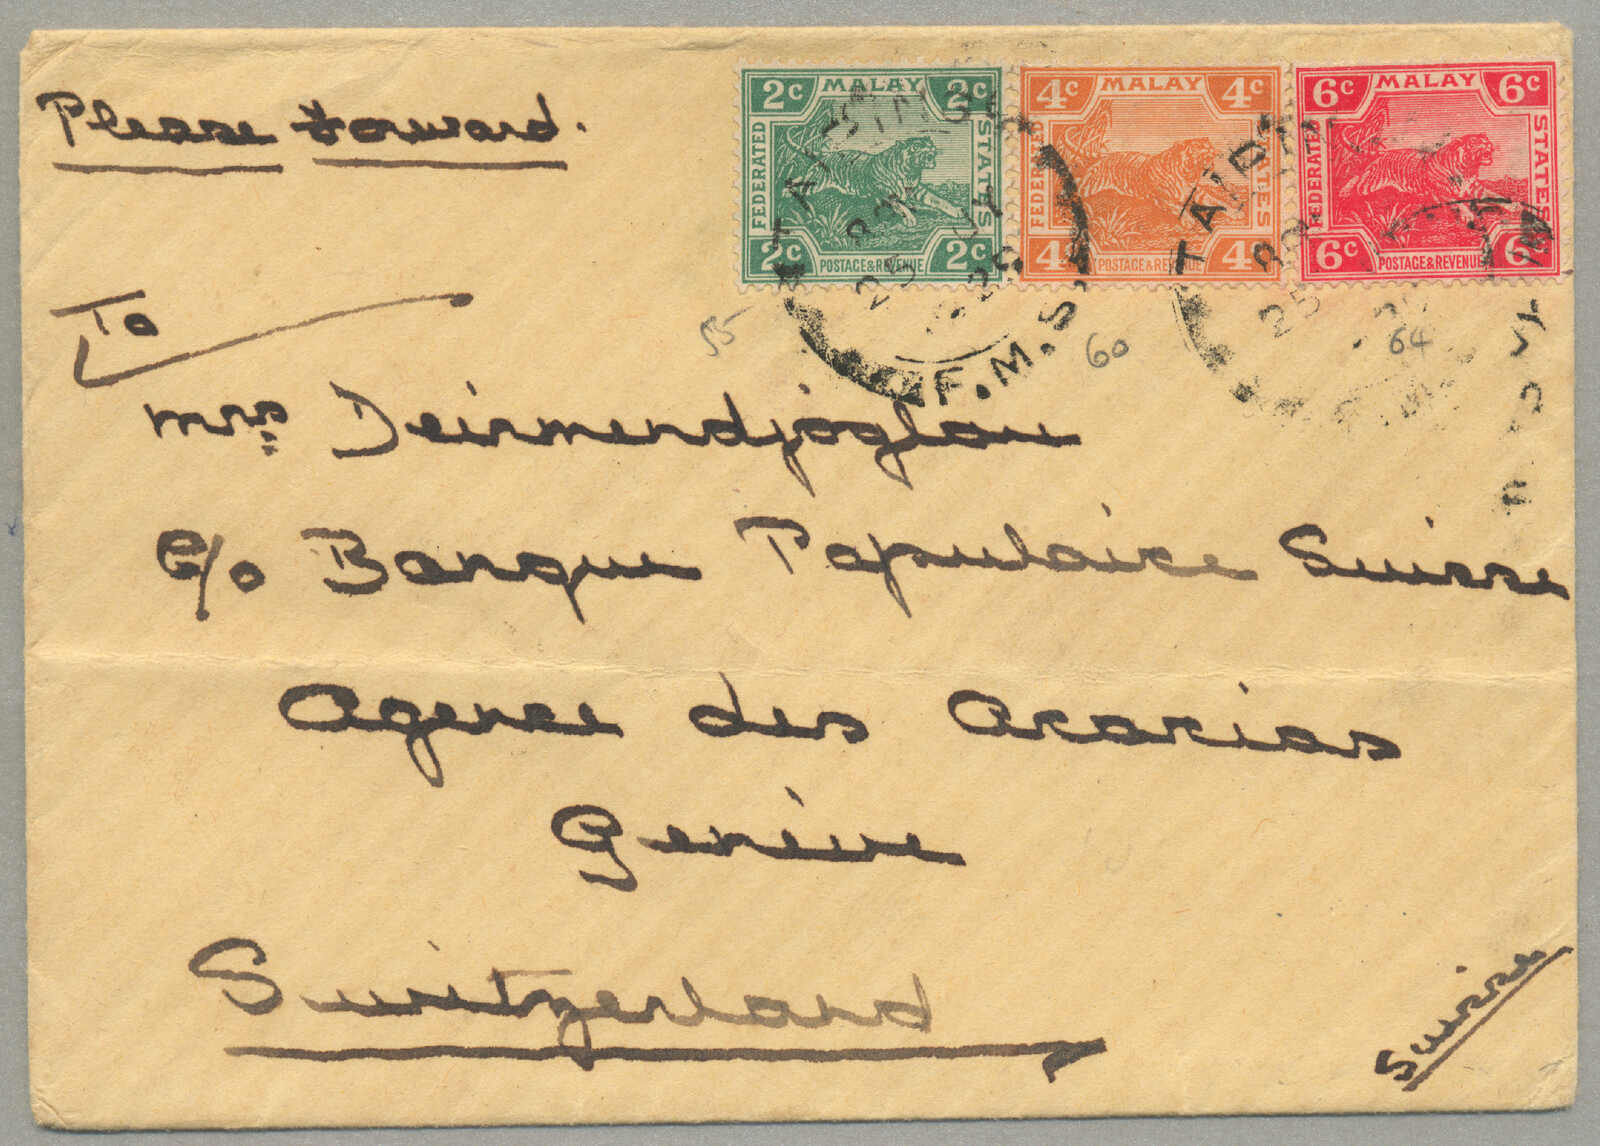 Please forward.
2c MALAY 2c
FEDERATED
STATES
2c POSTAGE & REVENUE 2c
4c MALAY 4c
FEDERATED
STATES
4c POSTAGE & REVENUE 4c
6c MALAY 6c
FEDERATED
STATES
6c POSTAGE & REVENUE 6c
TAIPING
25
F.M.S.
TAIPI
25
55
60
64
To
Mrs Deirmendjoglou
c/o Banque Populaire Suisse
Agence des Acacias
Genève
Switzerland
Suisse